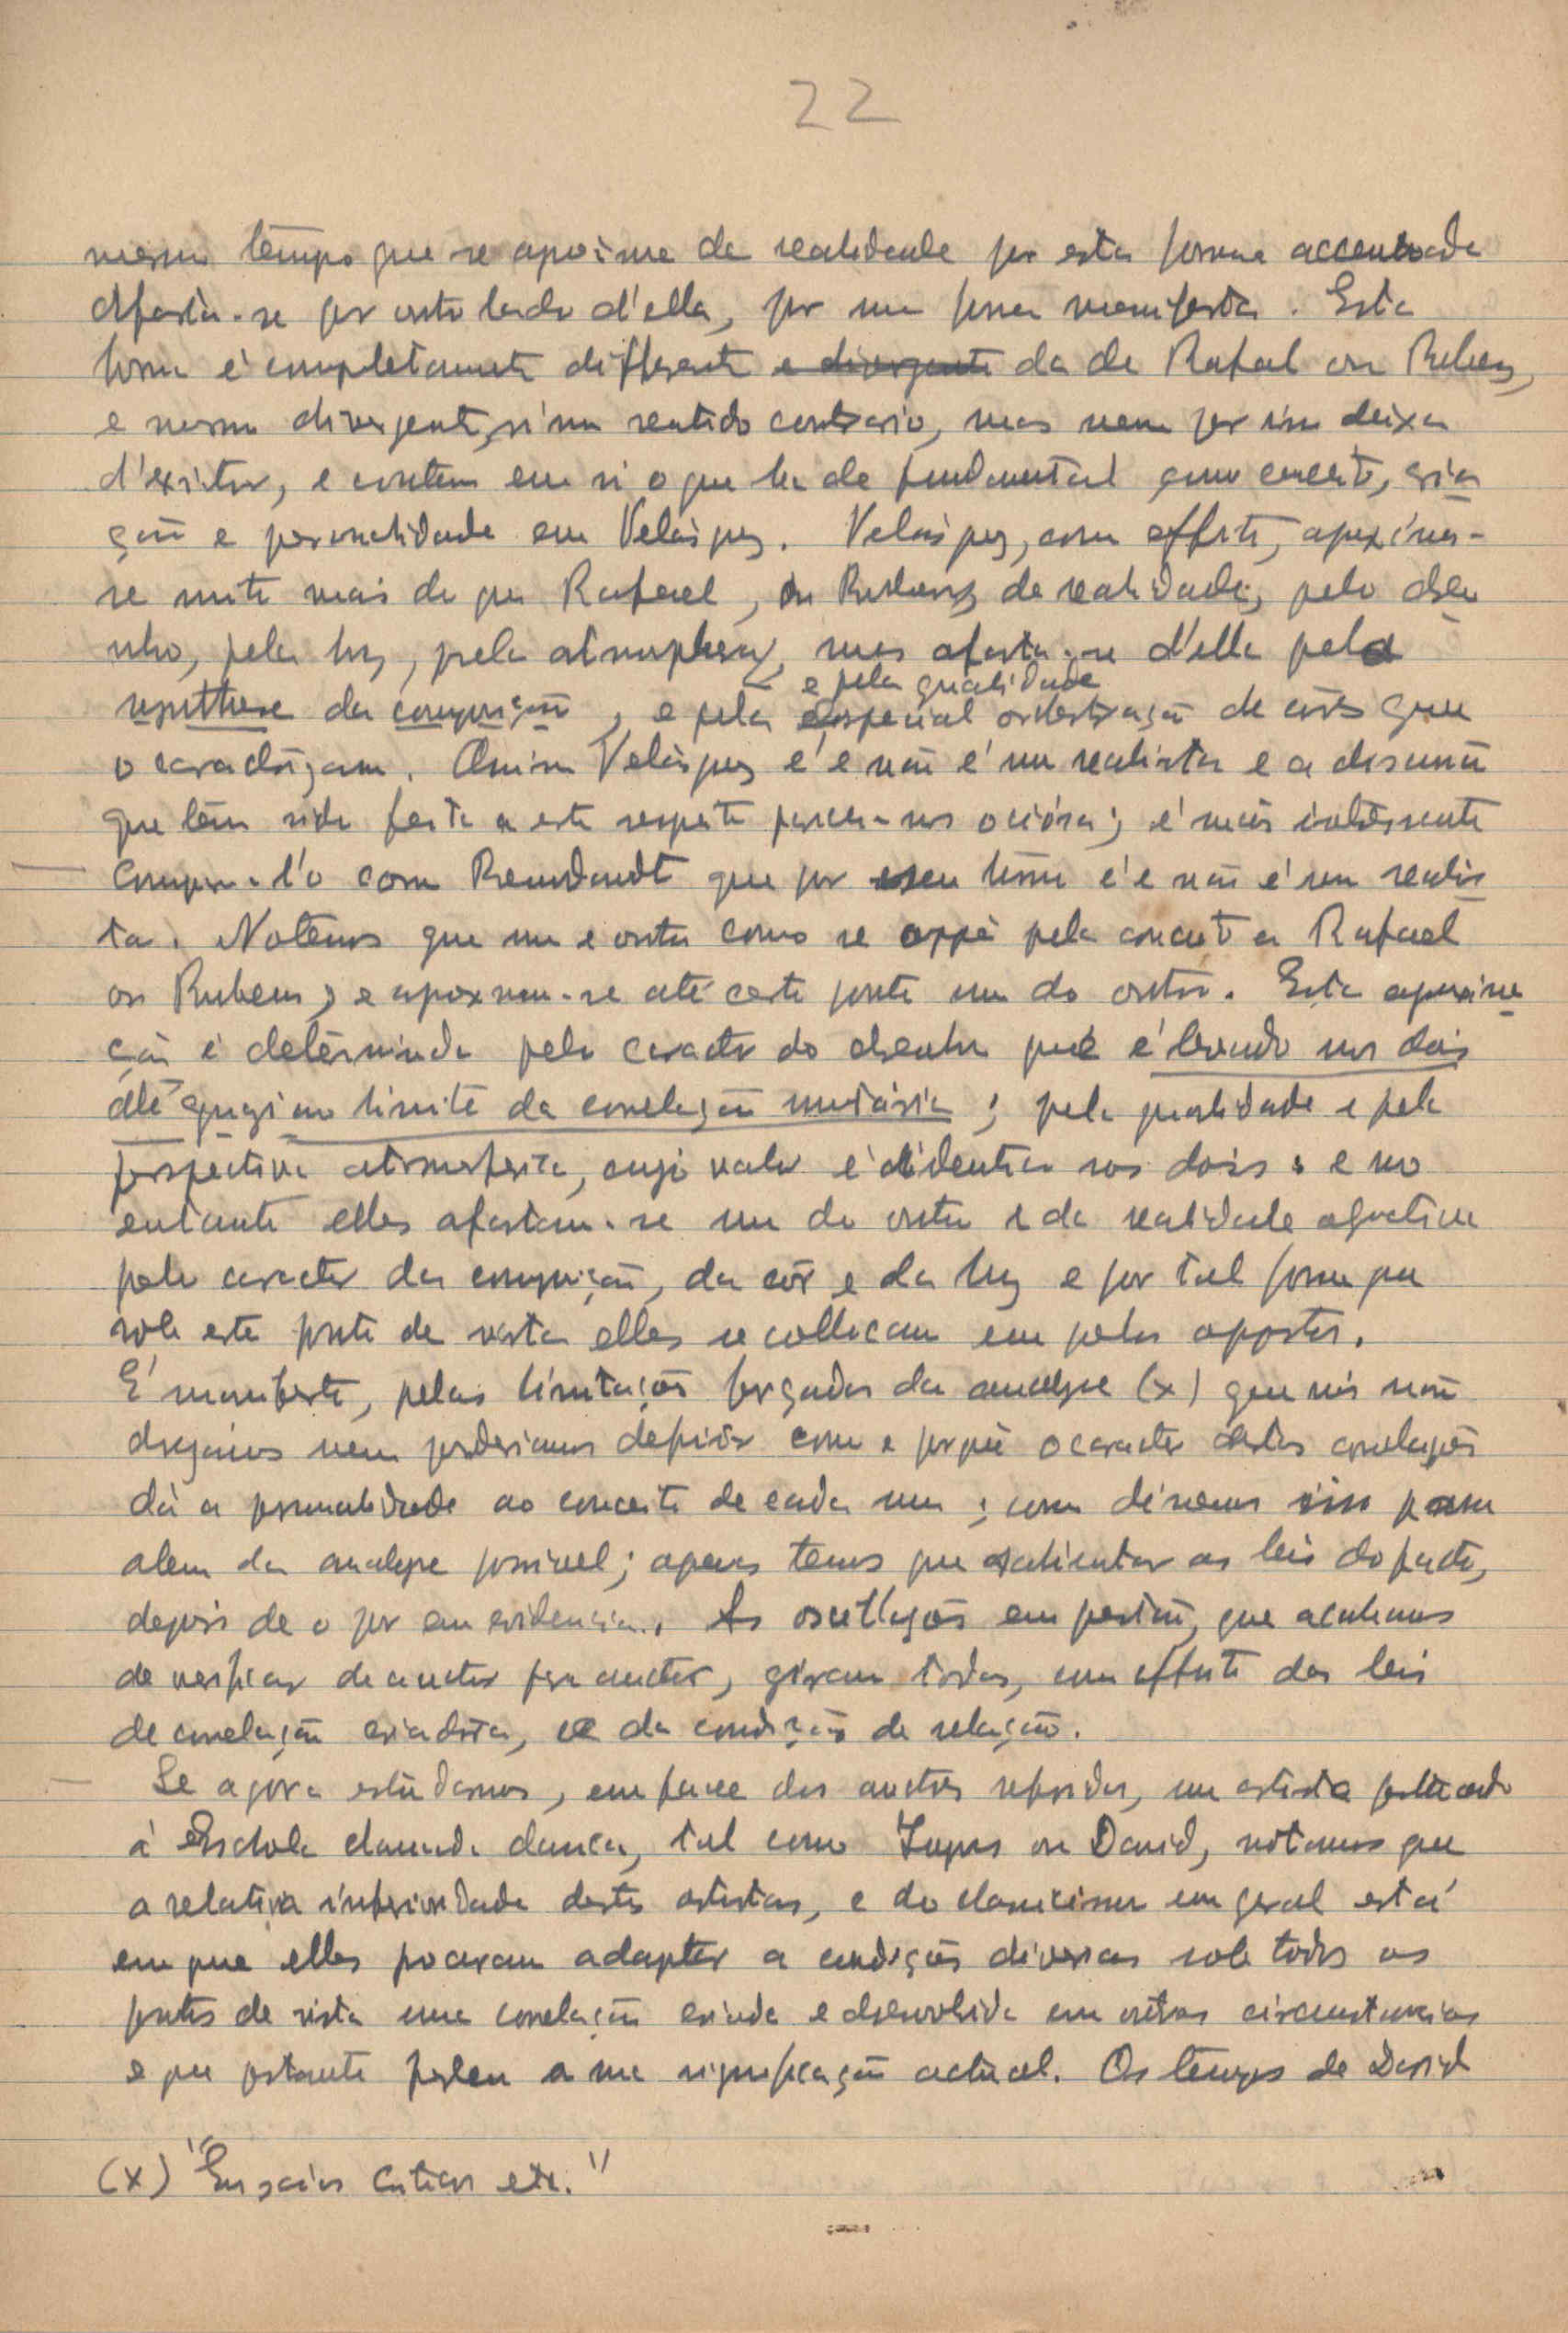 22
mesmo tempo que se aproxima da realidade por esta forma accentuada
afasta-se por outro lado d'ella, por uma forma manifesta. Esta
forma é completamente differente e divergente da de Rafael ou Rubens,
e mesmo divergente, n'um sentido contrario, mas nem por isso deixa
d'existir, e contem em si o que ha de fundamental como conceito, cria
ção e personalidade em Velásquez. Velásquez, com effeito, aproxima-
se muito mais do que Rafael, ou Rubens, da realidade, pelo dese
nho, pela luz, pela atmosphera, mas afasta-se d'ella pela
e pela qualidade
synthese da composição, e pela especial orchestração de côres que
o caracterizam. Assim Velásquez é e não é um realista e a discussão
que tem sido feita a este respeito parece-nos ociósa; é mais interessante
compara-l'o com Rembrandt que por seu turno é e não é um realis
ta. Notemos que um e outro como se oppõe pelo conceito a Rafael
ou Rubens, e aproximam-se até certo ponto um do outro. Esta aproxima
ção é determinada pelo caracter do desenho que é levado nos dois
até quasi ao limite da correlação unitária; pela qualidade e pela
perspectiva atmosferica, cujo valor é identico nos dois: e no
entanto elles afastam-se um do outro e da realidade objectiva
pelo caracter da composição, da côr e da luz e por tal forma que
sob este ponto de vista elles se collocam em polos oppostos.
É manifesto, pelas limitações forçadas da analyse (x) que nós não
desejamos nem poderiamos definir como e porquê o caracter destas correlações
dá a personalidade ao conceito de cada um; como dissemos isso passa
alem da analyse possivel; apenas temos que salientar as leis do facto,
depois de o pôr em evidencia. As oscillações em questão, que acabamos
de verificar de auctor para auctor, giram todas, com effeito das leis
de correlação criadora, e da condição de relação.
Se agora estudarmos, em face dos auctores referidos, um artista filiado
á Eschola chamada classica, tal como Ingres ou David, notamos que
a relativa inferioridade destes artistas, e do classicismo em geral está
em que elles procuram adaptar a condições diversas sob todos os
pontos de vista uma correlação criada e desenvolvida em outras circumstancias
e que portanto perdeu a sua significação actual. Os tempos de David
(x) "Ensaios Criticos etc."